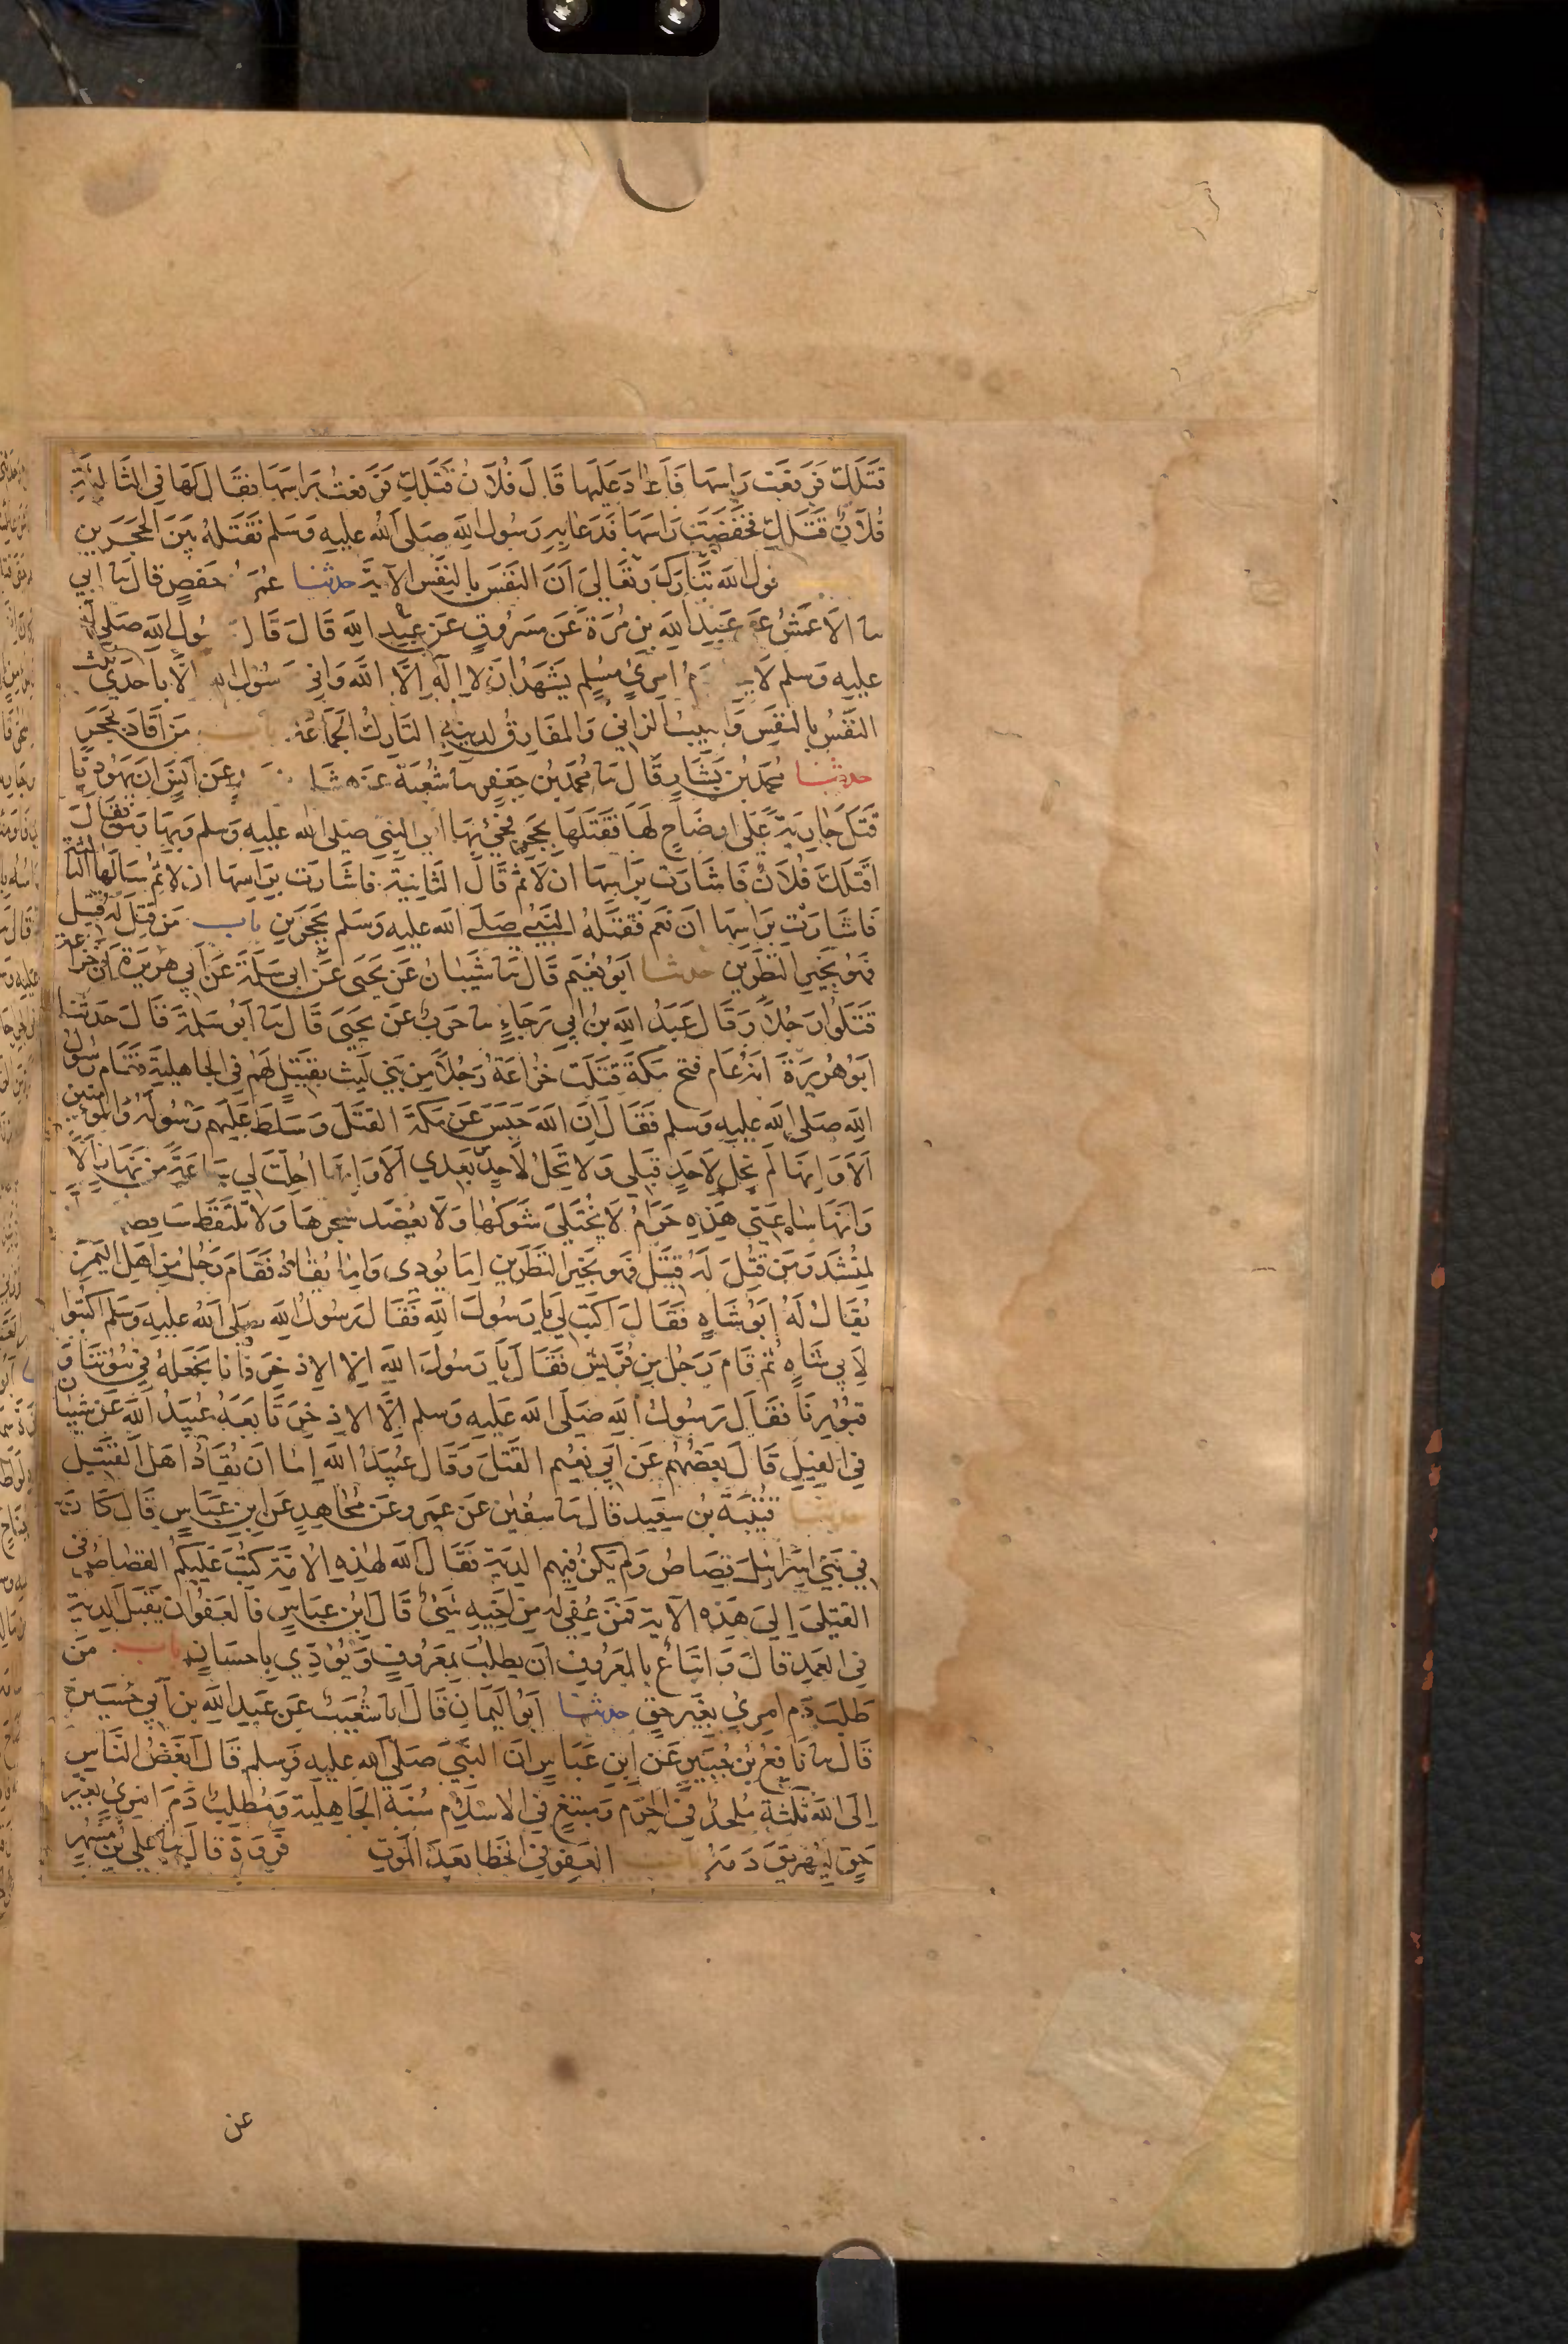 قَتَلَكِ فَرَفَعَت رَاسَهَا فَاَعَادَ عَلَيهَا قَالَ فُلَانٌ قَتَلَكِ فَرَفَعَتْ رَاسَهَا فَقَالَ لَهَا فِي الثَّالِثَةِ
فُلَانٌ قَتَلَكِ فَخَفَضَتْ رَاسَهَا فَدَعَا بِهِ رَسُولُ اللَّهِ صَلى اللهُ عليهِ وَسَلم فَقَتَلَهُ بَيْنَ الحَجَرَينِ
قول الله تَبَارَكَ وَتَعَالى اَنَّ النَّفسَ بِالنَّفسِ الآيَةَ حدثنا عُمَر حَفصٍ قالَ نا ابي
نا الاَعمَشُ عَن عَبدِ اللهِ بنِ مُرَّةَ عَن مَسرُوقٍ عَن عَبدِ اللهِ قَالَ قَالَ رَسُولُ اللهِ صَلى الله
عليهِ وَسلم لَا دَمُ امرِئٍ مُسلِمٍ يَشهَدُ اَن لا اِلَهَ اِلَّا اللهُ وَاَنِّي رَسُولُ الله اِلَّا بِاِحدَى ثلث
النَّفسُ بِالنَّفسِ وَالثيبُ الزَّانِي وَالمفَارِقُ لدينِهِ التَّارِكُ الجَمَاعَةَ باب مَن اَقَادَ بِحَجَرٍ
حدثنا مُحَمدُ بنُ بَشَّارٍ قَالَ نا مُحَمدُ بنُ جَعفَرٍ نا شُعبَةُ عَن هِشَا عَن اَنَسٍ اَنَّ يَهُودِيًّا
قَتَلَ جَارِيَةً عَلى اَوضَاحٍ لَهَا فَقَتَلَهَا بِحَجَرٍ فَجِيءَ بِهَا الى النبي صَلى الله عليهِ وَسلم وَبِهَا رَمَقٌ فَقَالَ
اَقَتَلَكِ فُلَانٌ فَاَشَارَت بِرَاسِهَا اَن لَا ثُمَّ قَالَ الثَّانِيَةَ فَاَشَارَت بِرَاسِهَا اَن لا ثُمَّ سَاَلَهَا الثَّالثة
فَاَشَارَت بِرَاسِهَا اَن نَعَم فَقَتَلَهُ النَّبِيُّ صَلى الله عليه وَسَلم بِحَجَرَينِ باب مَن قُتِلَ لَهُ قَتِيل
فَهُوَ بِخَيرِ النَّظَرَينِ حدثنا اَبُو نُعَيم قَالَ نا شَيبَانُ عَن يَحيَى عَن اَبِي سَلَمَةَ عَن اَبِي هُرَيرَةَ اَنَّ خُزَاعة
قَتَلُوا رَجُلًا وَقَالَ عَبدُ اللهِ بنُ اَبِي رَجَاءٍ نا حَربٌ عَن يَحيَى قَالَ نا اَبُو سَلَمَةَ قَالَ حَدثنا
اَبُو هُرَيرَةَ اَنَّهُ عَامَ فَتح مَكَّةَ قَتَلَت خُزَاعَةُ رَجُلًا مِن بَنِي لَيث بِقَتِيلٍ لَهُم فِي الجَاهِليةِ فَقَامَ رَسُولُ
اللهِ صَلى الله عليهِ وسلم فَقَالَ اِنَّ اللهَ حَبَسَ عَن مَكَّةَ القَتلَ وَسَلَّطَ عَلَيهِم رَسُولَهُ وَالمؤمنين
اَلَا وَاِنَّهَا لَم تَحِلَّ لِاَحَدٍ قَبلِي وَلا تَحِلُّ لِاَحَدٍ بَعدِي اَلَا وَاِنَّهَا اُحِلَّت لِي سَاعَةً مِن نَهَارٍ اَلَا
وَاِنَّهَا سَاعَتِي هَذِهِ حَرَامٌ لَا يُختَلَى شَوكُهَا وَلَا يُعضَد شجرهَا وَلا تُلتَقَط سَاقِطـ
لِمُنشِدٍ وَمَن قُتِلَ لَهُ قَتِيل فَهُوَ بِخَيرِ النَّظَرَينِ اِمَّا يُودَى وَاِمَّا يُقَادُ فَقَامَ رَجُلٌ مِن اَهلِ اليَمَنِ
يُقَالُ لَهُ اَبُو شَاهٍ فَقَالَ اكتُب لِي يَا رَسُولَ اللهِ فَقَالَ رَسُولُ اللهِ صَلى اللهُ عليهِ وَسَلم اكتُبُوا
لِاَبِي شَاهٍ ثُمَّ قَامَ رَجُل مِن قُرَيش فَقَالَ يَا رَسُولَ اللهِ اِلَّا الاِذخِرَ فَاِنَّا نَجعَلُهُ فِي بُيُوتِنَا وَ
قُبُورِنَا فَقَالَ رَسُولُ اللهِ صَلى الله عَليهِ وَسلم اِلَّا الاِذخِرَ تَابَعَهُ عُبَيدُ اللهِ عَن شَيبَان
فِي الفِيلِ قَالَ بَعضُهُم عَن اَبِي نُعَيم القَتلَ وَقَالَ عُبَيدُ اللهِ اِمَّا اَن يُقَادَ اَهلُ القَتِيلِ
حدثنا قُتَيبَةُ بنُ سَعِيد قالَ نا سُفيٰن عَن عَمرو عَن مُجَاهِدٍ عَن ابنِ عَبَّاسٍ قَالَ كَانَت
فِي بَنِي اِسرَائِيلَ قِصَاصٌ وَلم يَكُن فِيهِم الدِّيَةُ فَقَالَ اللهُ لِهٰذِهِ الاُمَّةِ كُتِبَ عَلَيكُم القِصَاصُ فِي
القَتلَى اِلَى هَذِهِ الآيَة فَمَن عُفِيَ لَهُ مِن اَخِيهِ شَيءٌ قَالَ ابنُ عَبَّاسٍ فَالعَفوُ اَن يَقبَلَ الدِّيَةَ
فِي العَمدِ قَالَ وَاتِّبَاعٌ بِالمَعرُوفِ اَن يَطلُبَ بِمَعرُوفٍ وَيُؤَدِّي بِاِحسَانٍ باب مَن
طَلَبَ دَمَ امرِئٍ بِغَيرِ حَقٍّ حدثنا اَبُو اليَمَانِ قَالَ انا شُعَيبٌ عَن عَبدِ اللهِ بنِ اَبِي حُسَينٍ
قَالَ نا نَافِعُ بنُ جُبَيرٍ عَن ابنِ عَبَّاسٍ اَنَّ النَّبِيَّ صَلى الله عليهِ وَسلم قَالَ اَبغَضُ النَّاسِ
اِلَى اللهِ ثَلٰثَة مُلحِدٌ فِي الحَرَمِ وَمُبتَغٍ فِي الاِسلَامِ سُنَّةَ الجَاهِلِيَّةِ وَمُطَّلِبٌ دَمَ امرِئٍ بِغَيرِ
حَقٍّ لِيُهَرِيقَ دَمَهُ باب العَفوِ فِي الخَطَا بَعدَ المَوتِ فَروَة قَالَ نا عَلِي بنُ مُسهِرٍ
عن